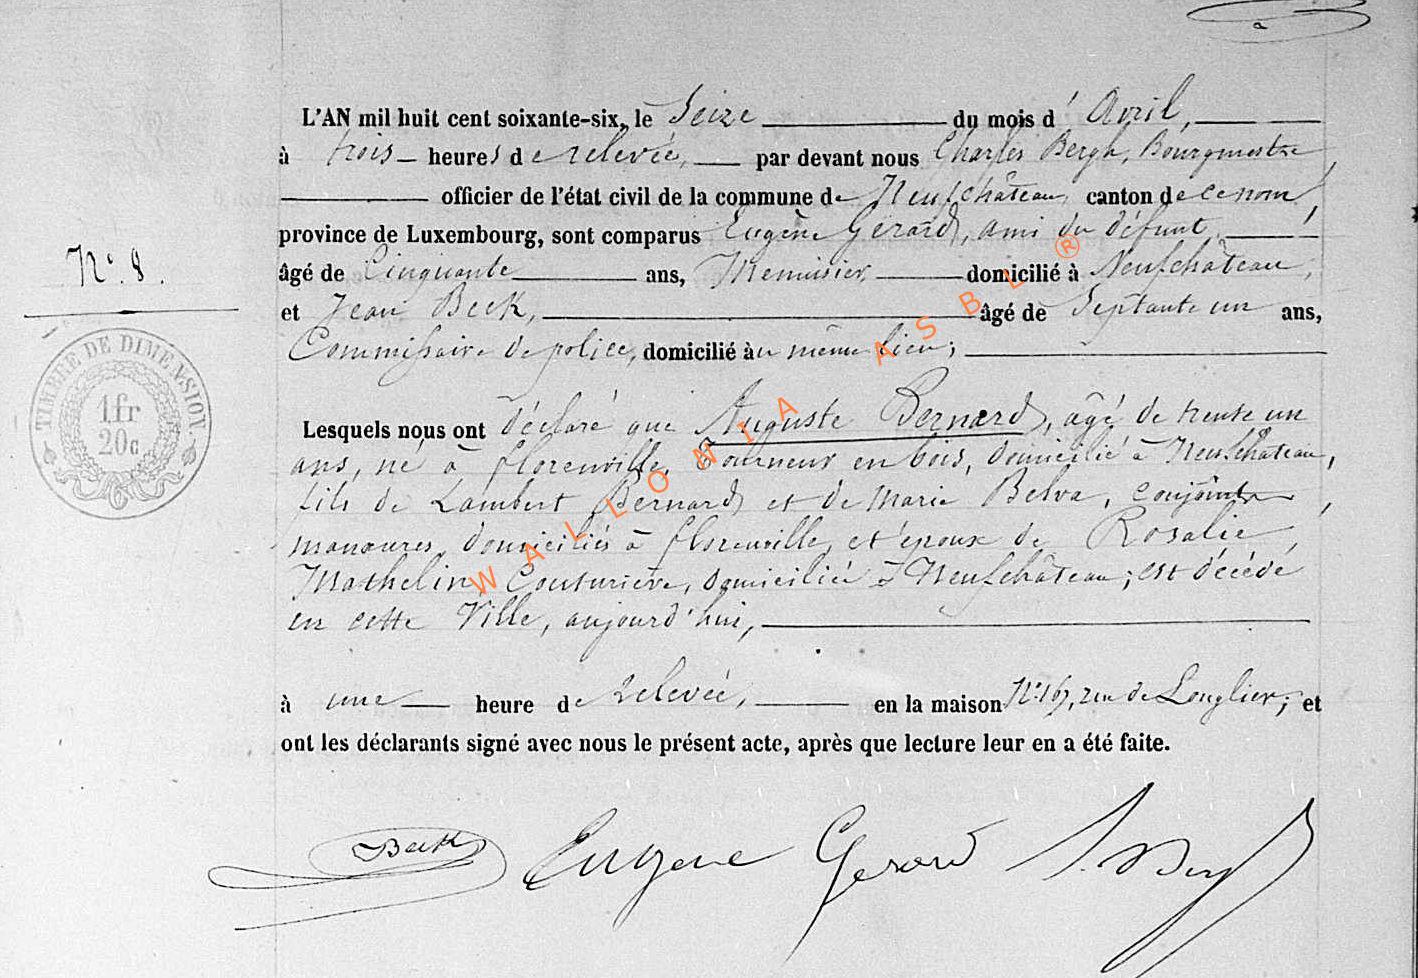 L'AN mil huit cent soixante-six, le Seize du mois d'Avril,
à trois heures de relevée, par devant nous Charles Bergh, Bourgmestre,
officier de l'état civil de la commune de Neufchâteau, canton de ce nom,
province de Luxembourg, sont comparus Eugène Gérard, ami du défunt,
N° 8.
âgé de Cinquante ans, Menuisier, domicilié à Neufchâteau,
et Jean Beck, âgé de Septante un ans,
Commissaire de police, domicilié au même lieu;
TIMBRE DE DIMENSION
1fr
20c
Lesquels nous ont déclaré que Auguste Bernard, âgé de trente un
ans, né à florenville, Tourneur en bois, domicilié à Neufchâteau,
fils de Lambert Bernard et de Marie Belva, conjoints,
manœuvres, domiciliés à florenville, et époux de Rosalie
Mathelin, Couturière, domiciliée à Neufchâteau; est décédé
en cette Ville, aujourd'hui,
à une heure de relevée, en la maison N° 167, rue de Longlier; et
ont les déclarants signé avec nous le présent acte, après que lecture leur en a été faite.
Beck Eugene Gerard
WALLONIA ASBL ®